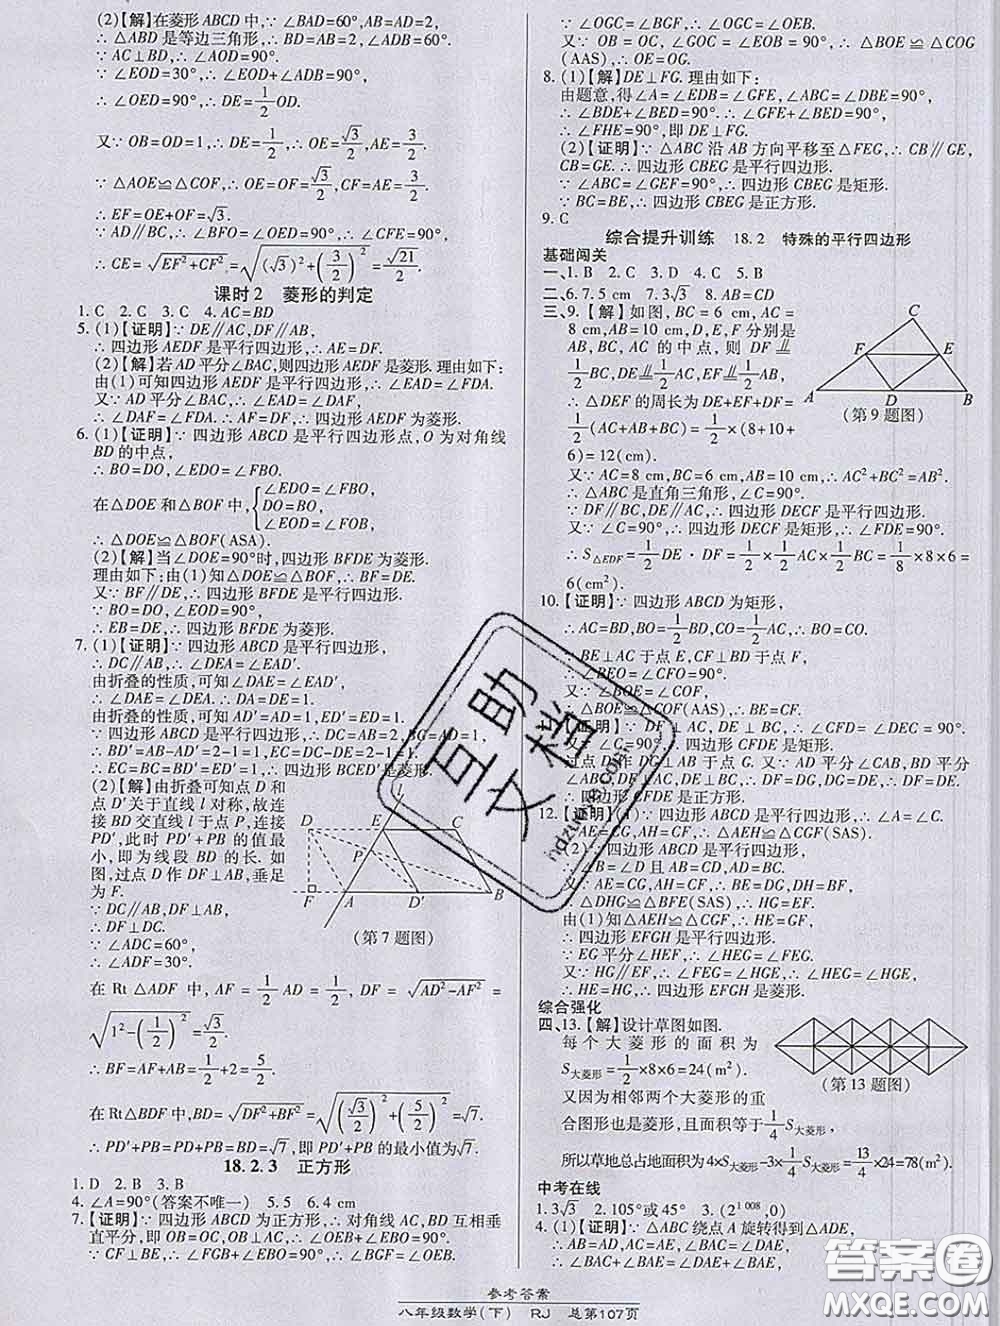 (2)【解】在菱形 ABCD 中,∵∠BAD=60°,AB=AD=2,
∴△ABD 是等边三角形,∴BD=AB=2,∠ADB=60°.
∵AC⊥BD,∴∠AOD=90°.
∵∠EOD=30°,∴∠EOD+∠ADB=90°.
∴∠OED=90°,∴DE=1/2 OD.
又∵OB=OD=1,∴DE=1/2,∴OE=√3/2,∴AE=3/2.
∵△AOE≌△COF,∴OE=OF=√3/2,CF=AE=3/2.
∴EF=OE+OF=√3.
∵AD∥BC,∴∠BFO=∠OED=90°.
∴CE=√(EF²+CF²)=√((√3)²+(3/2)²)=√21/2.
课时2 菱形的判定
1.C 2.C 3.C 4.AC=BD
5.(1)【证明】∵DE∥AC,DF∥AB,
∴四边形 AEDF 是平行四边形,∴AE=DF.
(2)【解】若 AD 平分∠BAC,则四边形 AEDF 是菱形.理由如下:
由(1)可知四边形 AEDF 是平行四边形,∴∠EAD=∠FDA.
又∵AD 平分∠BAC,∴∠EAD=∠DAF,
∴∠DAF=∠FDA.∴AF=DF,∴四边形 AEDF 为菱形.
6.(1)【证明】∵四边形 ABCD 是平行四边形点,O 为对角线
BD 的中点,
∴BO=DO,∠EDO=∠FBO.
在△DOE 和△BOF 中,{∠EDO=∠FBO,
DO=BO,
∠EOD=∠FOB,
∴△DOE≌△BOF(ASA).
(2)【解】当∠DOE=90°时,四边形 BFDE 为菱形.
理由如下:由(1)知△DOE≌△BOF,∴BF=DE.
又∵BF∥DE,∴四边形 BFDE 是平行四边形.
∵BO=DO,∠EOD=90°,
∴EB=DE,∴四边形 BFDE 为菱形.
7.(1)【证明】∵四边形 ABCD 是平行四边形,
∴DC∥AB,∴∠DEA=∠EAD′.
由折叠的性质,可知∠DAE=∠EAD′,
∴∠DAE=∠DEA.∴DA=DE=1.
由折叠的性质,可知 AD′=AD=1,ED′=ED=1.
∵四边形 ABCD 是平行四边形,∴DC=AB=2,BG=AD=1.
∴BD′=AB-AD′=2-1=1,EC=DC-DE=2-1=1.
∴EC=BC=BD′=ED′=1,∴四边形 BCED′是菱形.
(2)【解】由折叠可知点 D 和
点 D′关于直线 l 对称,故连
接 BD 交直线 l 于点 P,连接
PD′,此时 PD′+PB 的值最
小,即为线段 BD 的长.如
图,过点 D 作 DF⊥AB,垂足
为 F.
∵DC∥AB,DF⊥AB,
∴DF⊥DC.
∵∠ADC=60°,
∴∠ADF=30°.
l
D E C
P
F A D′ B
(第7题图)
在 Rt△ADF 中,AF=1/2 AD=1/2,DF=√(AD²-AF²)=
√(1²-(1/2)²)=√3/2.
∴BF=AF+AB=1/2+2=5/2.
在 Rt△BDF 中,BD=√(DF²+BF²)=√((√3/2)²+(5/2)²)=√7.
∴PD′+PB=PD+PB=BD=√7,即 PD′+PB 的最小值为√7.
18.2.3 正方形
1.D 2.B 3.B
4.∠A=90°(答案不唯一) 5.5 6.4 cm
7.【证明】∵四边形 ABCD 为正方形,∴对角线 AC,BD 互相垂
直平分,即 OB=OC,OB⊥AC,∴∠OEB+∠EBO=90°.
∵CF⊥BE,∴∠FGB+∠EBO=90°,∴∠BGF=∠OEB.
∵∠OGC=∠BGF,∴∠OGC=∠OEB.
又∵OB=OC,∠GOC=∠EOB=90°,∴△BOE≌△COG
(AAS),∴OE=OG.
8.(1)【解】DE⊥FG.理由如下:
由题意,得∠A=∠EDB=∠GFE,∠ABC=∠DBE=90°,
∴∠BDE+∠BED=90°.∴∠GFE+∠BED=90°,
∴∠FHE=90°,即 DE⊥FG.
(2)【证明】∵△ABC 沿 AB 方向平移至△FEG,∴CB∥GE,
CB=GE.∴四边形 CBEG 是平行四边形.
∵∠ABC=∠GEF=90°,∴四边形 CBEG 是矩形.
∵BC=BE,∴四边形 CBEG 是正方形.
9.C
综合提升训练 18.2 特殊的平行四边形
基础闯关
一、1.B 2.C 3.C 4.C 5.B
二、6.7.5 cm 7.3√3 8.AB=CD
三、9.【解】如图,BC=6 cm,AC=
8 cm,AB=10 cm,D,E,F 分别是
AB,BC,AC 的中点,则 DF∥=
1/2 BC,DE∥=1/2 AC,EF∥=1/2 AB,
∴△DEF 的周长为 DE+EF+DF=
1/2(AC+AB+BC)=1/2×(8+10+
6)=12(cm).
C
F E
A D B
(第9题图)
又∵AC=8 cm,BC=6 cm,AB=10 cm,∴AC²+BC²=AB².
∴△ABC 是直角三角形,∴∠C=90°.
∵DF∥BC,DE∥AC,∴四边形 DECF 是平行四边形.
又∵∠C=90°,∴四边形 DECF 是矩形,∴∠FDE=90°.
∴S△EDF=1/2 DE·DF=1/2×1/2 AC×1/2 BC=1/8×8×6=
6(cm²).
10.【证明】∵四边形 ABCD 为矩形,
∴AC=BD,BO=1/2 BD,CO=1/2 AC,∴BO=CO.
∵BE⊥AC 于点 E,CF⊥BD 于点 F,
∴∠BEO=∠CFO=90°.
又∵∠BOE=∠COF,
∴△BOE≌△COF(AAS),∴BE=CF.
【证明】∵DF⊥AC,DE⊥BC,∴∠CFD=∠DEC=90°.
又∵∠C=90°,∴四边形 CFDE 是矩形.
过点 D 作 DG⊥AB 于点 G.又∵AD 平分∠CAB,BD 平分
∠ABC,DF⊥AC,DE⊥BC,∴DF=DG,DG=DE,∴DF=DE.
∴四边形 CFDE 是正方形.
12.【证明】(1)∵四边形 ABCD 是平行四边形,∴∠A=∠C.
∵AE=CG,AH=CF,∴△AEH≌△CGF(SAS).
(2)∵四边形 ABCD 是平行四边形,
∴∠B=∠D 且 AB=CD,AD=BC.
∵AE=CG,AH=CF,∴BE=DG,BF=DH,
∴△DHG≌△BFE(SAS),∴HG=EF.
由(1)知△AEH≌△CGF,∴HE=GF.
∴四边形 EFGH 是平行四边形.
∵EG 平分∠HEF,∴∠HEG=∠FEG.
又∵HG∥EF,∴∠FEG=∠HGE,∴∠HEG=∠HGE,
∴HE=HG,∴四边形 EFGH 是菱形.
综合强化
四、13.【解】设计草图如图.
每个大菱形的面积为
S大菱形=1/2×8×6=24(m²).
又因为相邻两个大菱形的重
合图形也是菱形,且面积等于1/4 S大菱形,
(第13题图)
所以草地总占地面积 4×S大菱形-3×1/4 S大菱形=13/4×24=78(m²).
中考在线
1.3√3 2.105°或45° 3.(2^1 008,0)
4.(1)【证明】∵△ABC 绕点 A 旋转得到△ADE,
∴AB=AD,AC=AE,∠BAC=∠DAE,
参考答案
八年级数学(下) RJ 总第107页
互助文档
答案圈
MXQE.COM